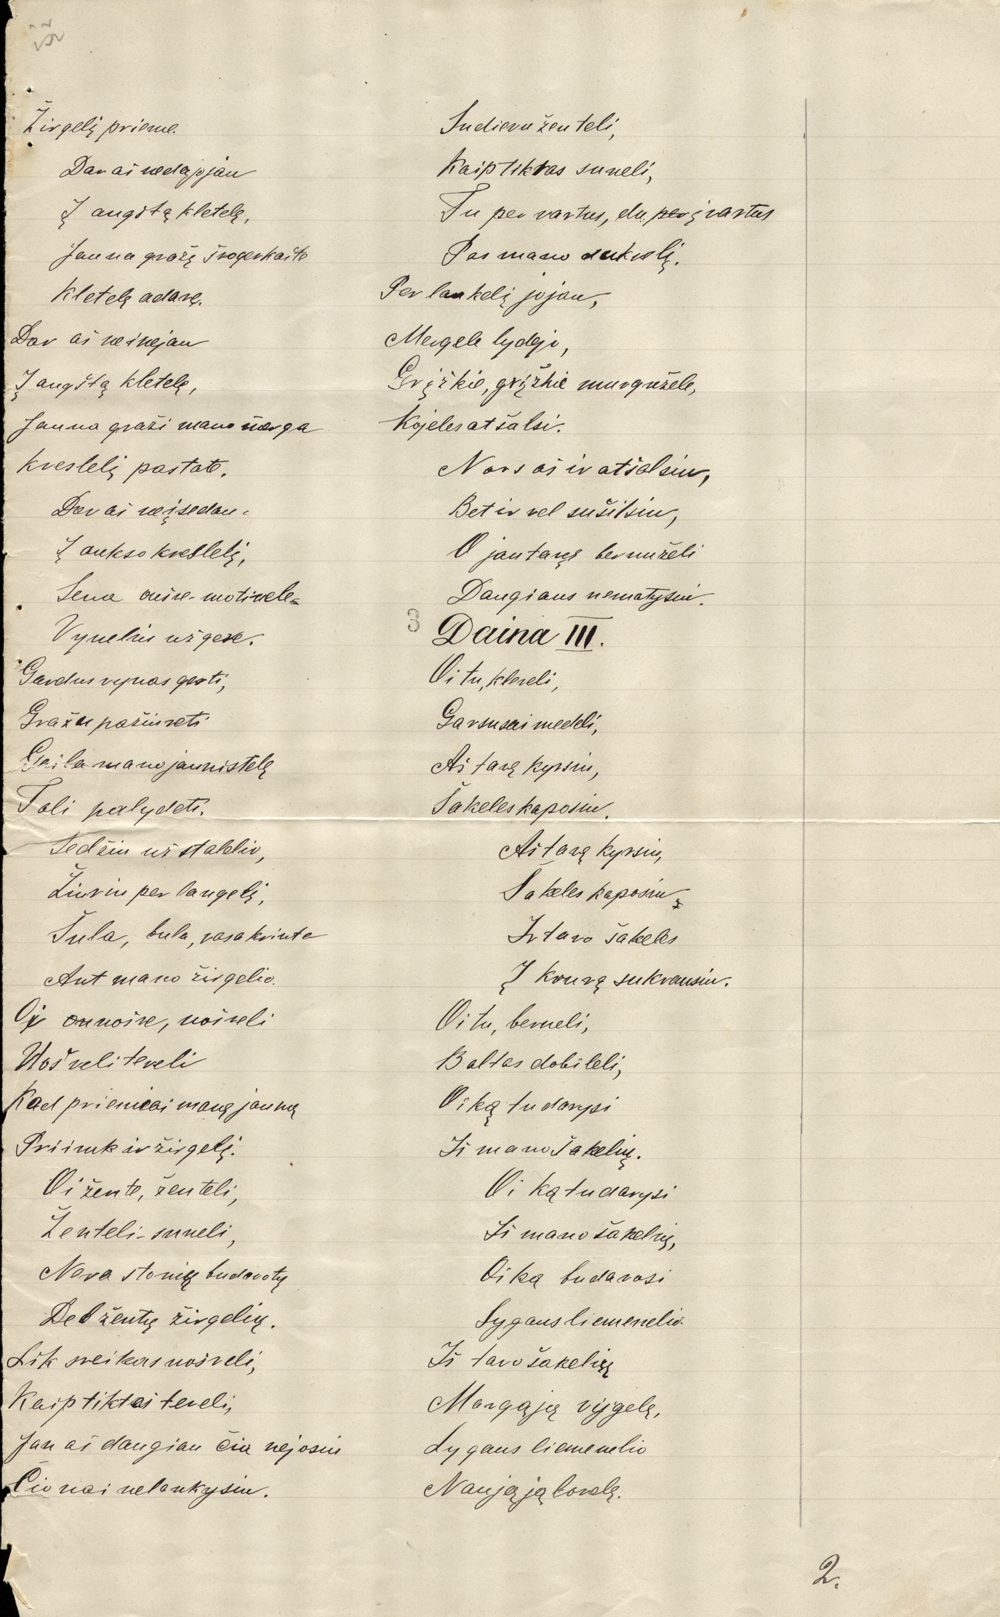 Žirgelį prieme.
Dar aš nedajojau
Į augštą kletelę,
Jauna gražį švogerkaitė
Kletelę adarę.
Dar aš neinejau
Į augštą kletelę,
Jauna graži mano merga
Kreslelį pastatė.
Dar aš neįsedau
Į aukso kreslelį,
Sena motinele
Vyneliu užgere.
Gardus vynas gerti,
Gražu pažiureti
Gaila mano jaunistelę
Toli palydeti.
Sedžiu už stalelio,
Žiuriu per langelį,
Šula, bula, rasa krinta
Ant mano žirgelio.
Oi nošve, nošveli
Uošveli teveli
Kad priemiai manę jauną
Priimk ir žirgelį.
Oi žente, ženteli,
Ženteli-suneli,
Nera stonių budavotų
Del žentų žirgelių.
Lik sveikas uošveli,
Kaip tiktas teveli,
Jau aš daugiau čia nejosiu
Čionai nelankysiu.
Sudievu ženteli,
Kaip tiktas suneli,
Tu per vartus, du per įvartus
Pas mano dukrelį.
Per laukelį jojau,
Mergele lydejo,
Grįžkie, grįžkie murgužele,
Kojeles atšalsi.
Nors aš ir atšalsiu,
Bet ir vel sušilsiu,
O jau tavę bernuželi
Daugiaus nematysiu.
3 Daina III.
Oi tu, kleveli,
Garsusai medeli,
Aš tavę kyrsiu,
Šakeles kaposiu.
Aš tavę kyrsiu,
Šakeles kaposiu,
Ir tavo šakeles
Į krauvą sukrausiu.
Oi tu, berneli,
Baltas dobileli,
Oi ką tu darysi
Iš mano šakelių.
Oi ką tu darysi
Iš mano šakelių,
Oi ką budavosi
Lygaus liemenelio.
Iš tavo šakelių
Margąją vygelę,
Lygaus liemenelio
Naująją lovelę.
2.